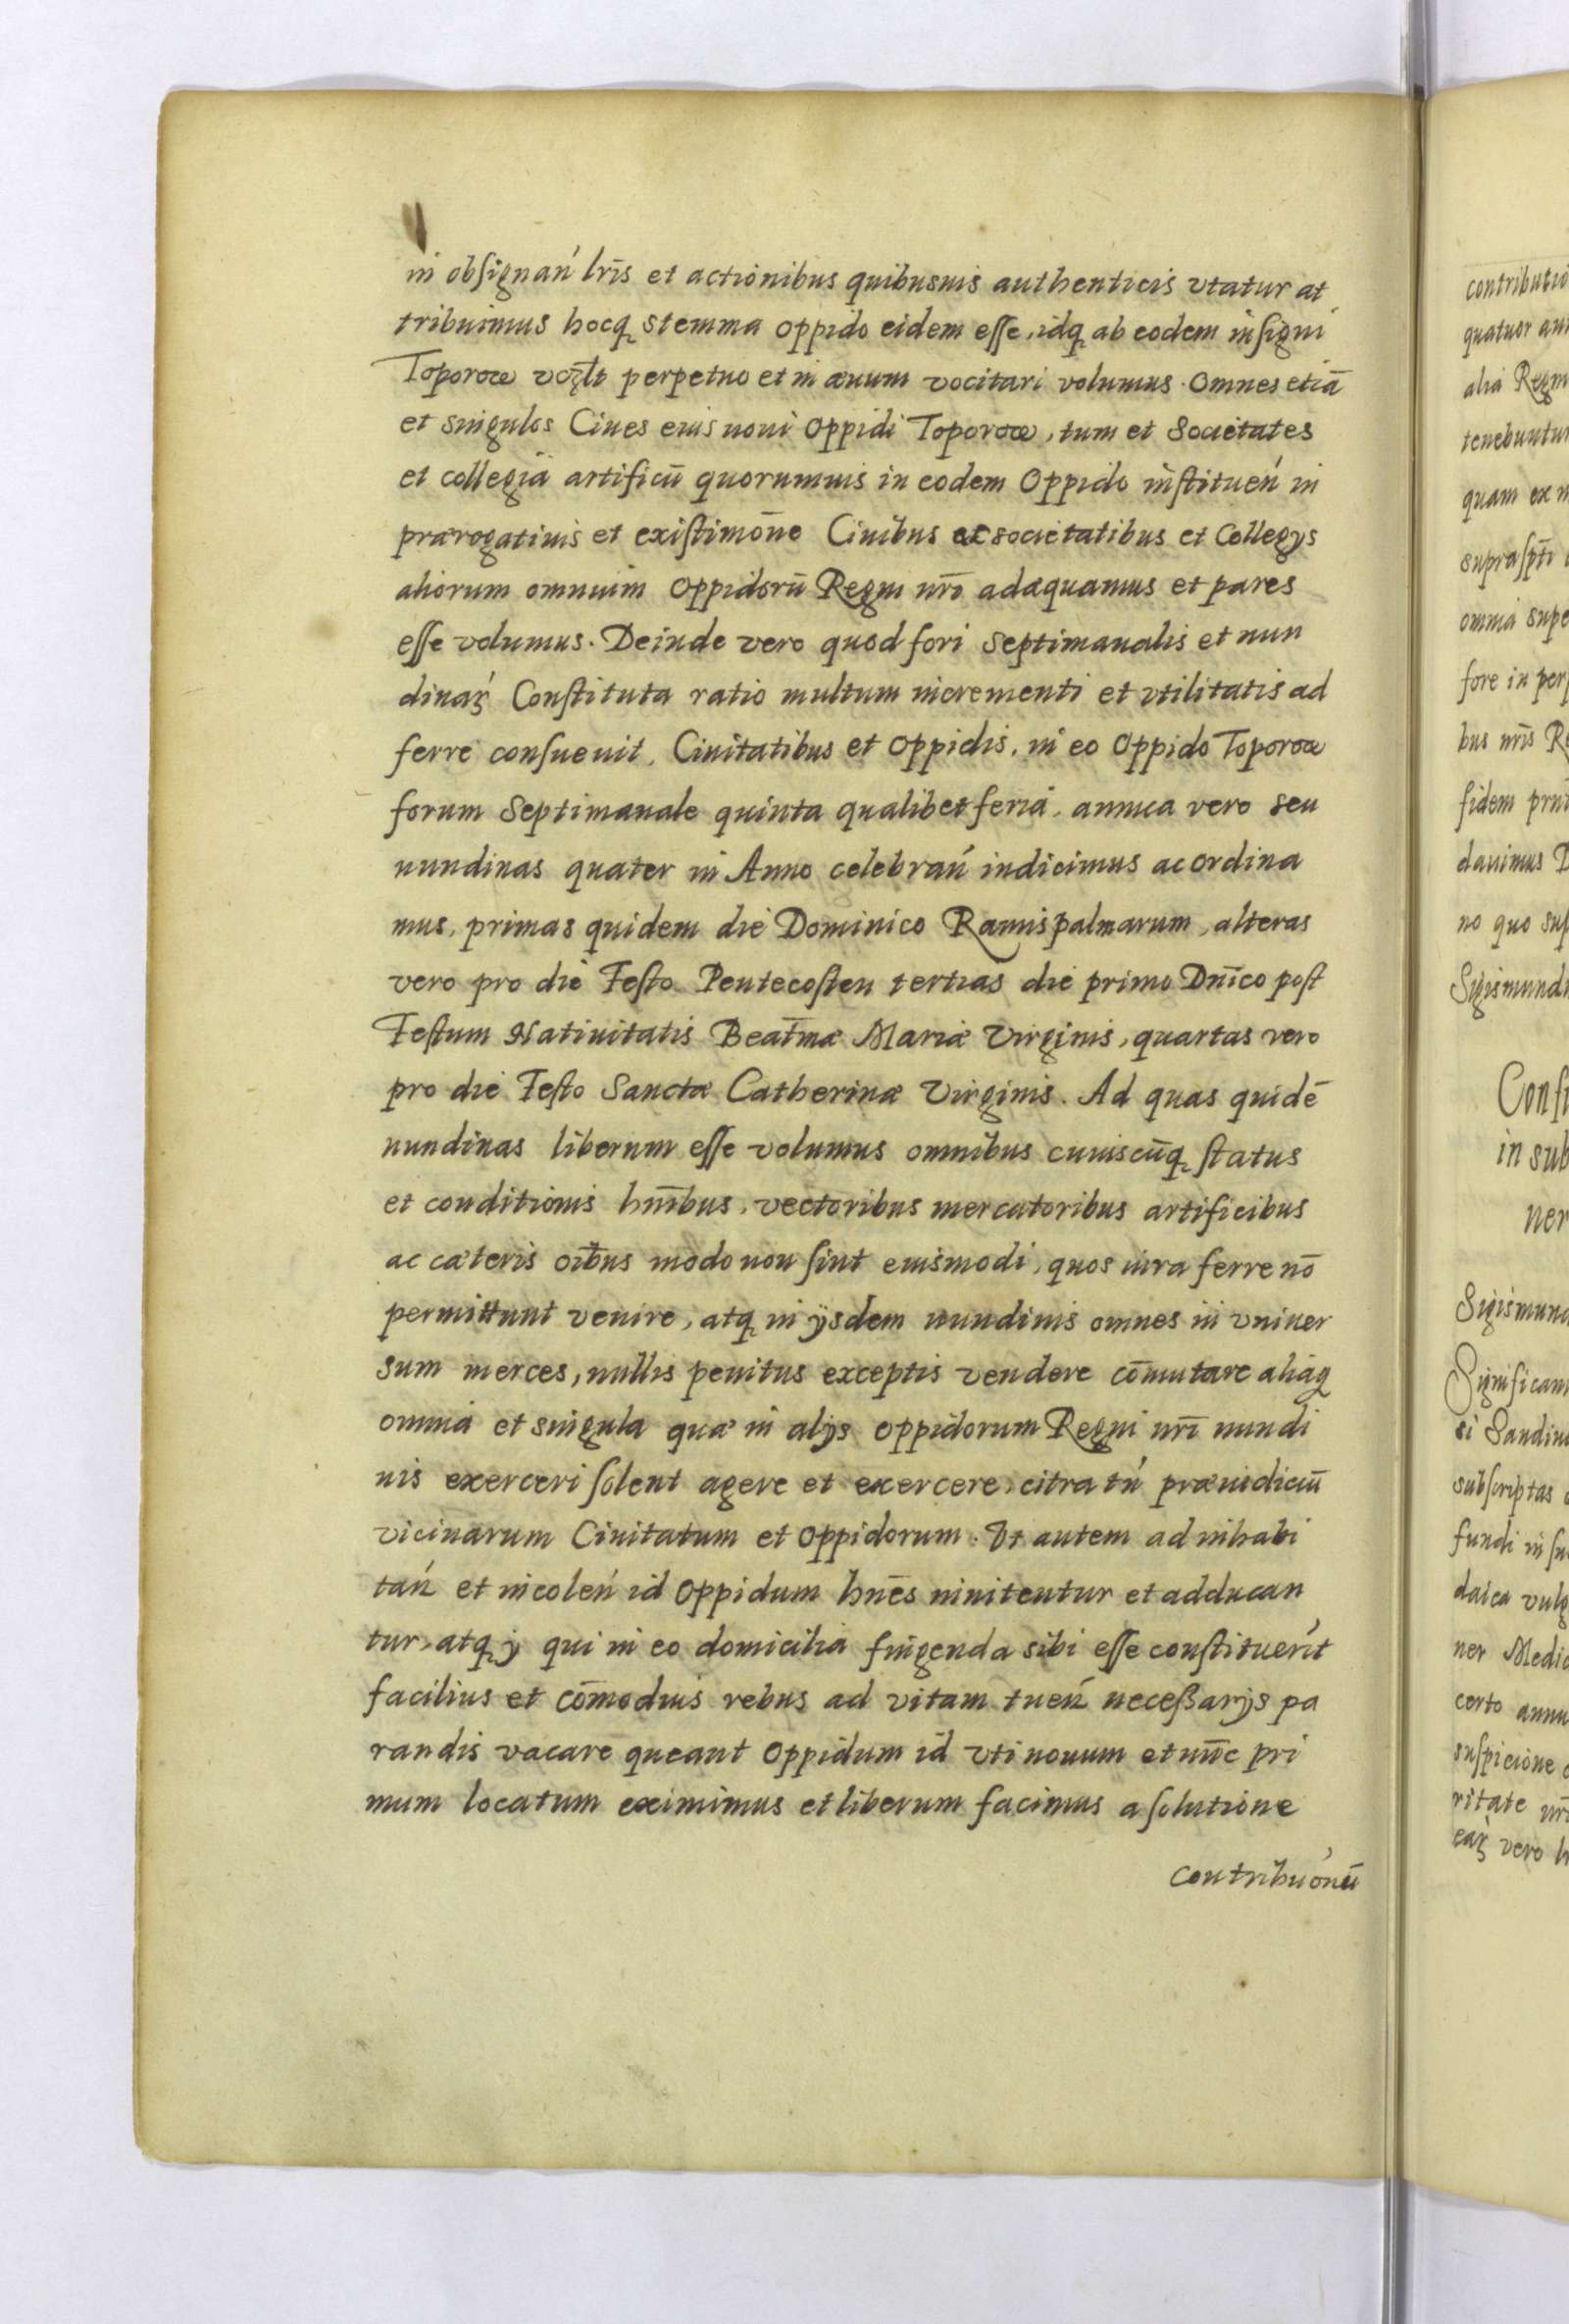 in obsignań lr̄is et actionibus quibusuis authenticis vtatur at
tribuimus hocq stemma oppido eidem esse, idq ab eodem insigni
Toporow perpetuo et in æuum vocitari volumus. Omnes etiā
et singulos Ciues eius noui Oppidi Toporow, tum et Societates
et collegia artificū quorumuis in eodem Oppido institueń in
prærogatiuis et existimōne Ciuibus et societatibus et Collegys
aliorum omnium Oppidorū Regni nr̄i adæquamus et pares
esse volumus. Deinde vero quod fori Septimanalis et nun
dinaꝝ Constituta ratio multum incrementi et vtilitatis ad
ferre consueuit, Ciuitatibus et Oppidis, in eo Oppido Toporow
forum Septimanale quinta qualibet feria, annua vero seu
nundinas quater in Anno celebrań indicimus ac ordina
mus, primas quidem die Dominico Ramispalmarum, alteras
vero pro die Festo Pentecosten tertias die primo Dn̄ico post
Festum Natiuitatis Beat̄mæ Mariæ Virginis, quartas vero
pro die Festo Sanctæ Catherinæ Virginis. Ad quas quidē
nundinas liberum esse volumus omnibus cuiuscūq status
et conditionis hn̄ibus, vectoribus mercatoribus artificibus
ac cæteris oībus modo non sint eiusmodi, quos iura ferre nō
permittunt venire, atq in ÿsdem nundinis omnes in vniuer
sum merces, nullis penitus exceptis vendere cōmutare aliaq
omnia et singula quæ in alÿs oppidorum Regni nr̄i nundi
nis exerceri solent agere et exercere, citra tń præiudiciū
vicinarum Ciuitatum et Oppidorum. Vt autem ad inhabi
tań et incoleń id Oppidum hn̄es inuitentur et adducan
tur, atq y qui in eo domicilia fingenda sibi esse constituerīt
facilius et cōmodius rebus ad vitam tueń necessarÿs pa
randis vacare queant Oppidum id vti nouum et nūc pri
mum locatum eximimus et liberum facimus a solutione
contribuónū